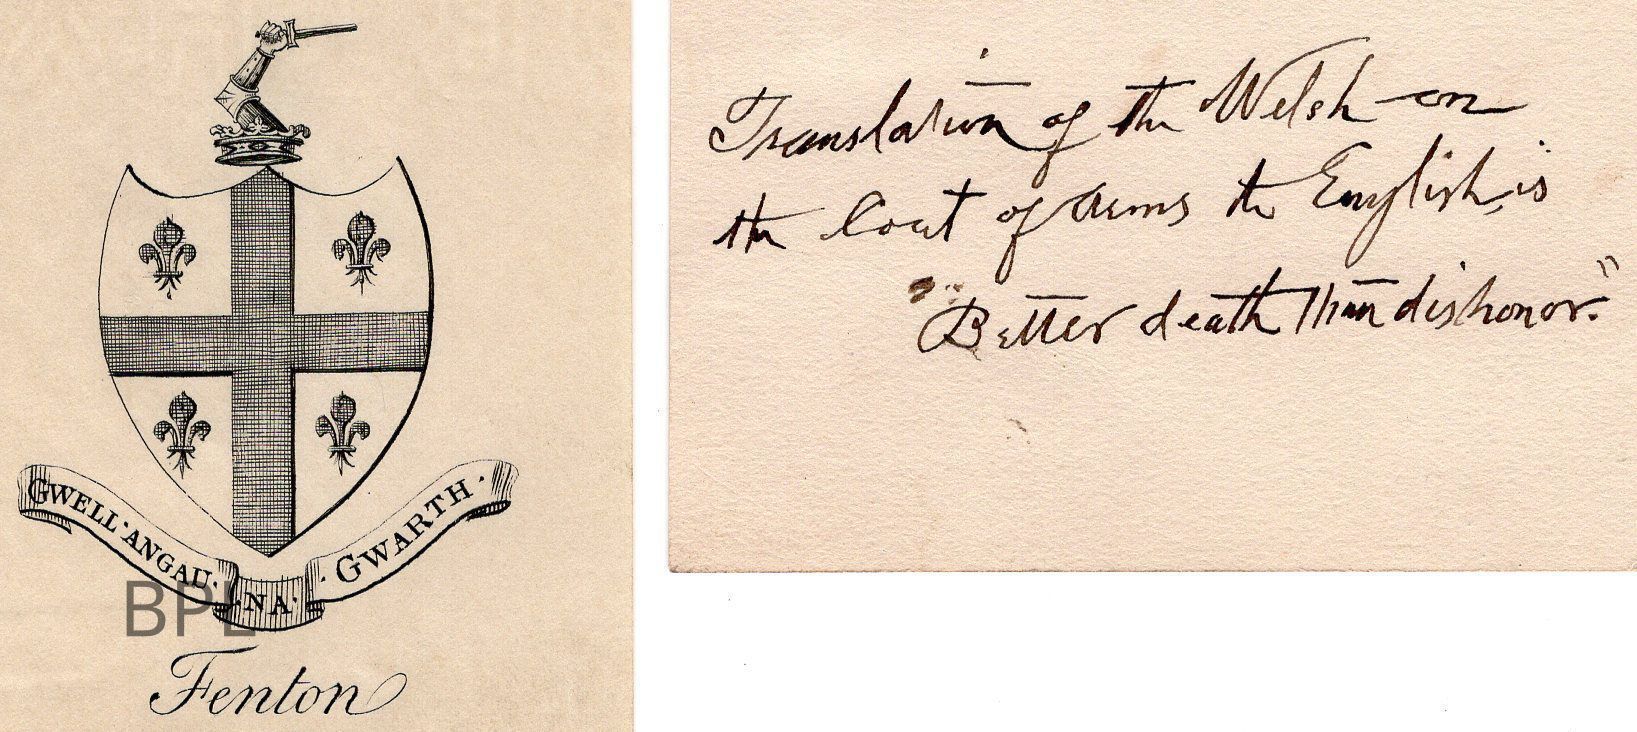 GWELL · ANGAU · NA · GWARTH ·
BPL
Fenton
Translation of the Welsh on
the Coat of Arms to English, is
"Better death than dishonor."